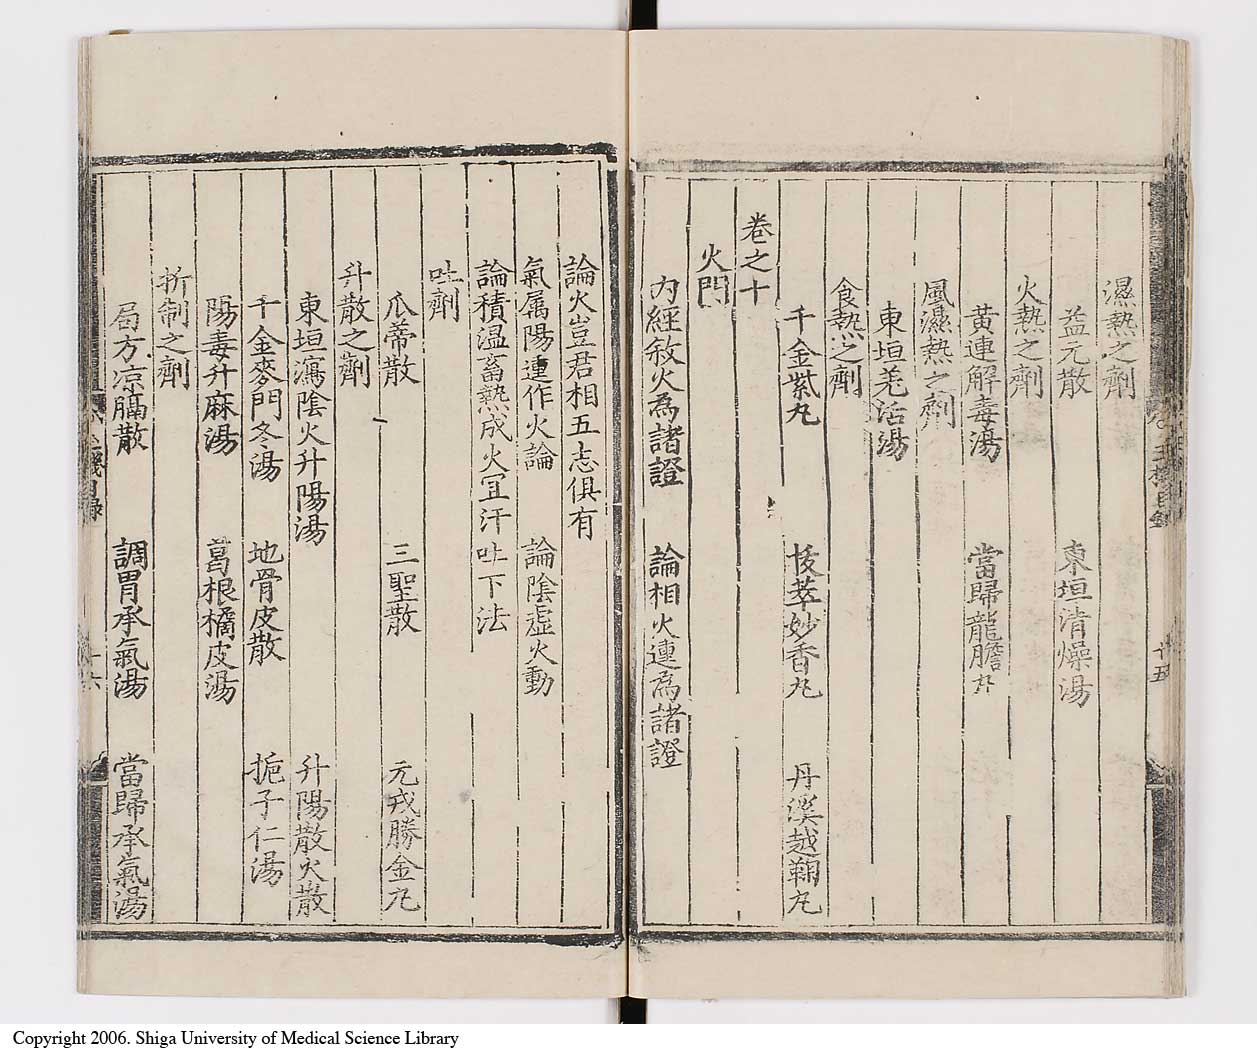 濕熱之劑
益元散　東垣清燥湯
火熱之劑
黃連解毒湯　當歸龍膽丸
風濕熱之劑
東垣羌活湯
食熱之劑
千金紫丸　拔萃妙香丸　丹溪越鞠丸
卷之十
火門
內經敘火爲諸證　論相火連爲諸證
論火豈君相五志俱有
氣属陽連作火論　論陰虛火動
論積温畜熱成火冝汗吐下法
吐劑
瓜蒂散　三聖散　元戎勝金丸
升散之劑
東垣瀉陰火升陽湯　升陽散火散
千金麥門冬湯　地骨皮散　梔子仁湯
陽毒升麻湯　葛根橘皮湯
折制之劑
局方凉膈散　調胃承氣湯　當歸承氣湯
十六
Copyright 2006. Shiga University of Medical Science Library